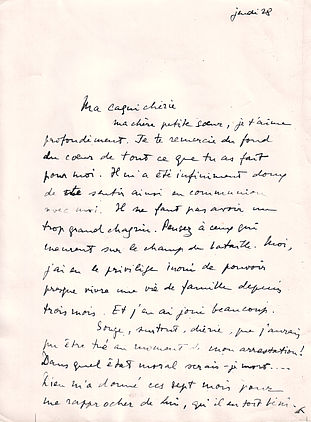 jeudi 28
Ma caqui chérie
ma chère petite sœur, je t'aime
profondément. Je te remercie du fond
du cœur de tout ce que tu as fait
pour moi. Il m'a été infiniment doux
de te sentir ainsi en communion
avec moi. Il ne faut pas avoir un
trop grand chagrin. Pensez à ceux qui
meurent sur le champ de bataille. Moi,
j'ai eu le privilège inouï de pouvoir
presque vivre une vie de famille depuis
trois mois. Et j'en ai joui beaucoup.
Songe, surtout, chérie, que j'aurais
pu être tué au moment de mon arrestation!
Dans quel état moral serais-je mort....
Dieu m'a donné ces sept mois pour
me rapprocher de Lui, qu'il en soit béni.